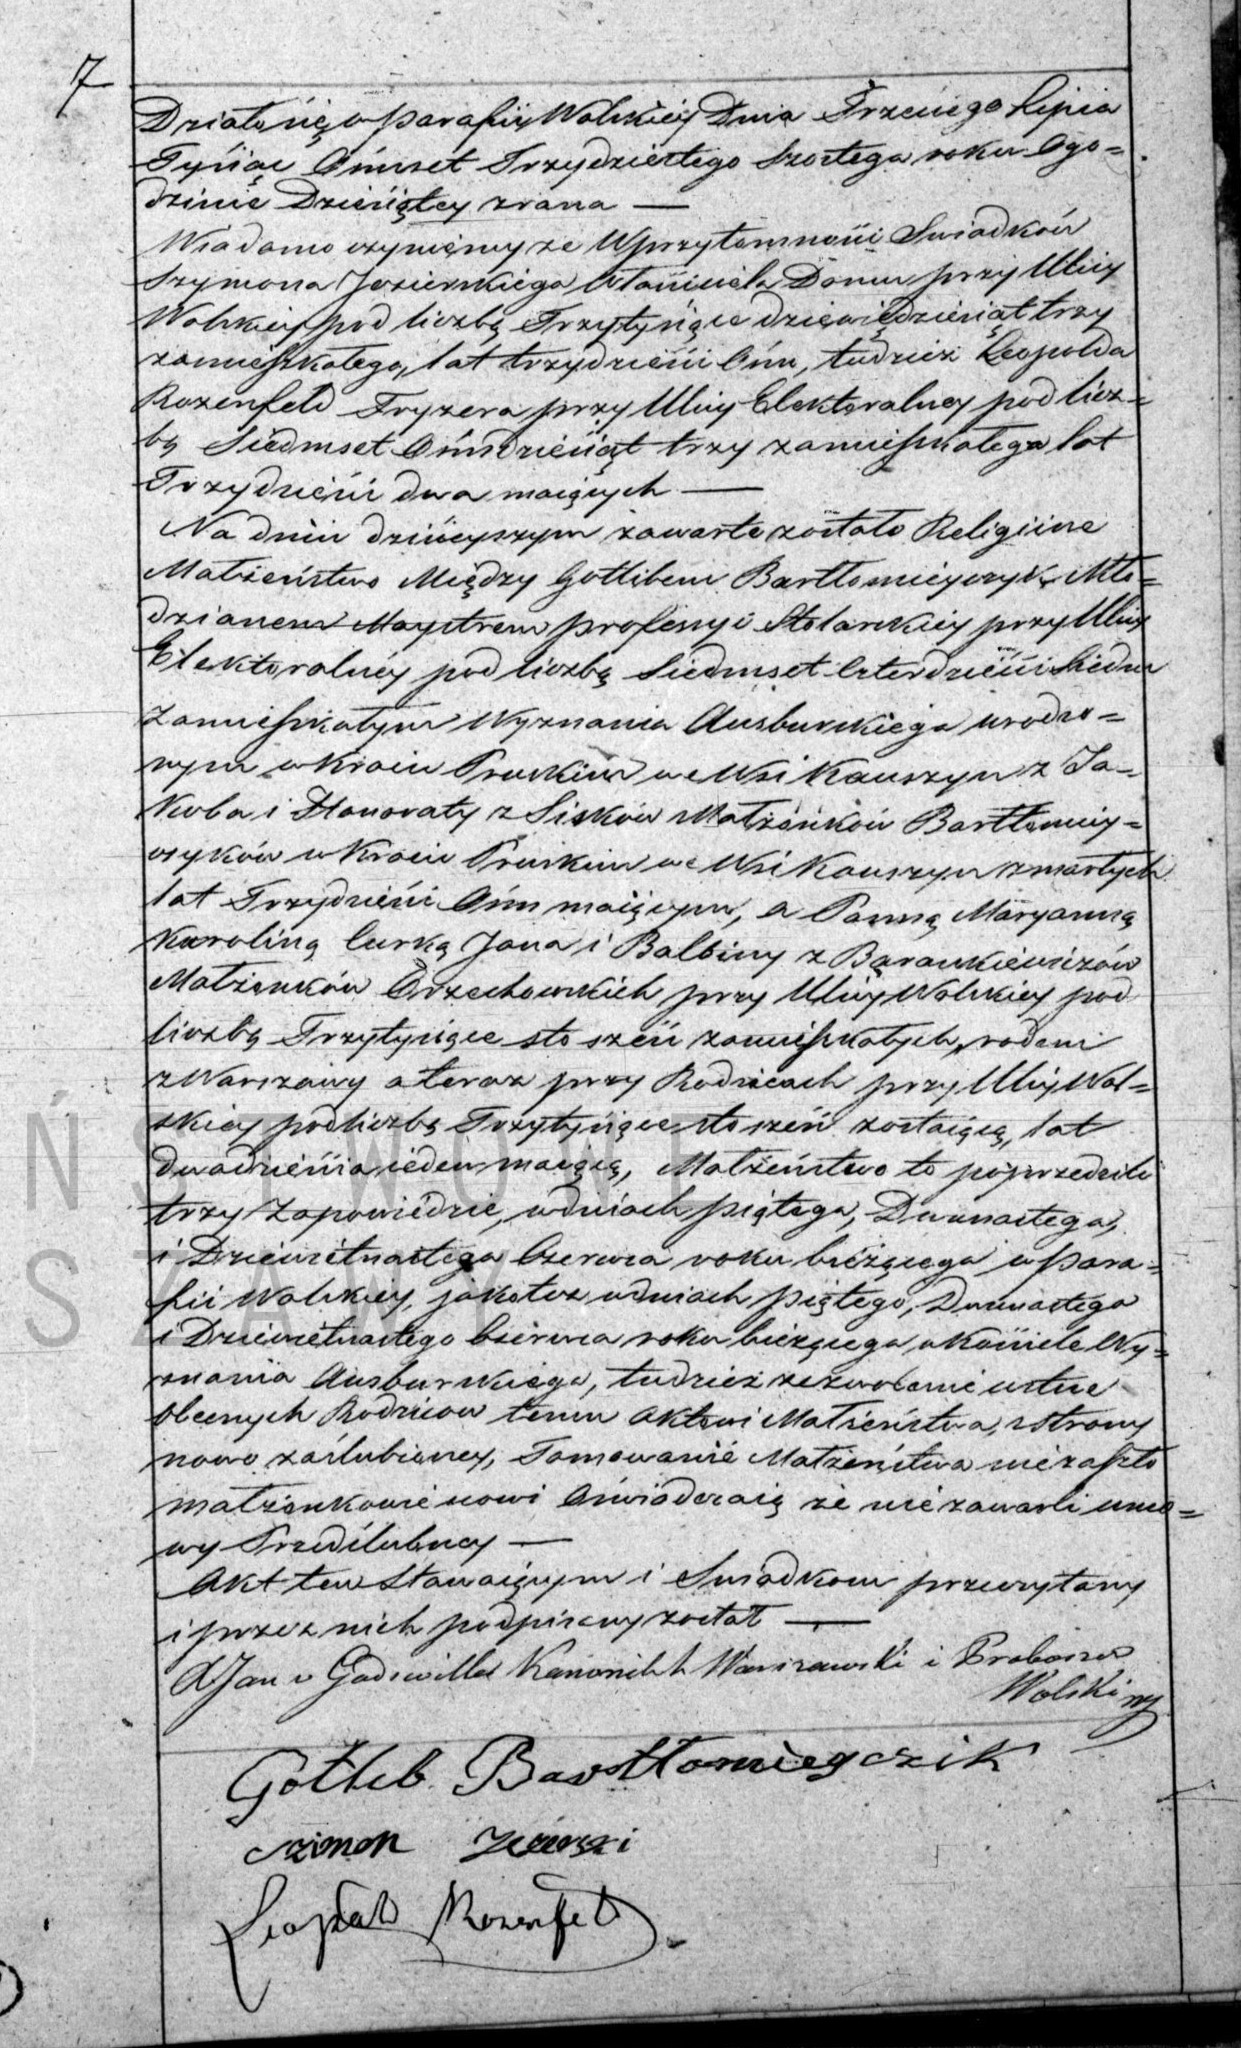 7
Działo się w parafii Wolskiey Dnia Trzeciego Lipca
Tysiąc Ośmset Trzydziestego Szostego roku o go=
dzinie Dziesiątey zrana —
Wiadomo czyniemy że w przytomności Swiadków
Szymona Jezierskiego Właściciela Domu przy Ulicy
Wolskiey pod liczbą Trzytysiące dziewiędziesiąt trzy
zamieszkałego, lat trzydzieści Ośm, tudzież Leopolda
Rozenfeld Fryzera przy Ulicy Elektoralney pod licz=
bą Siedmset Ośmdziesiąt trzy zamieszkałego lat
Trzydzieści dwa maiących —
Na dniu dzisieyszym zawarte zostało Religiine
Małżeństwo Między Gottlibem Bartłomieyczyk Mło=
dzianem Maystrem professyi Stolarskiey przy Ulicy
Elektoralney pod liczbą Siedmset Czterdzieści Siedm
zamieszkałym Wyznania Ausburskiego urodzo=
nym w Kraiu Pruskim we Wsi Kauszyn z Ja=
kuba i Honoraty z Sisków Małżonków Bartłomiey=
czyków w Kraiu Pruskim we Wsi Kauszyn zmarłych
lat Trzydzieści Ośm maiącym, a Panną Maryanną
Karoliną Curką Jana i Balbiny z Barankiewiczów
Małżonków Orzechowskich przy Ulicy Wolskiey pod
liczbą Trzytysiące sto sześć zamieszkałych, rodem
z Warszawy a teraz przy Rodzicach przy Ulicy Wol=
skiey pod liczbą Trzytysiące sto sześć zostaiącą, lat
dwadzieścia ieden maiącą, Małżeństwo to poprzedziły
trzy Zapowiedzie, w dniach piątego, Dwunastego,
i Dziewietnastego Czerwca roku bieżącego w para=
fii Wolskiey, jakoteż w dniach piątego, Dwunastego
i Dziewietnastego Czerwca roku bieżącego w Kościele Wy=
znania Ausburskiego, tudzież zezwolenie ustne
obecnych Rodziców temu Aktowi Małżeństwa, z strony
nowo zaślubioney, Tamowanie Małżeństwa nie zaszło
małżonkowie nowi Oświadczaią że nie zawarli umo=
wy Przedślubney —
Akt ten Stawaiącym i Swiadkom przeczytany
i przez nich podpisany został —
X Jan Kanonik Warszawski i Proboszcz
Wolski
Gotlieb Bartłomiegczik
Szimon Jezierski
Leopold Rozenfeld